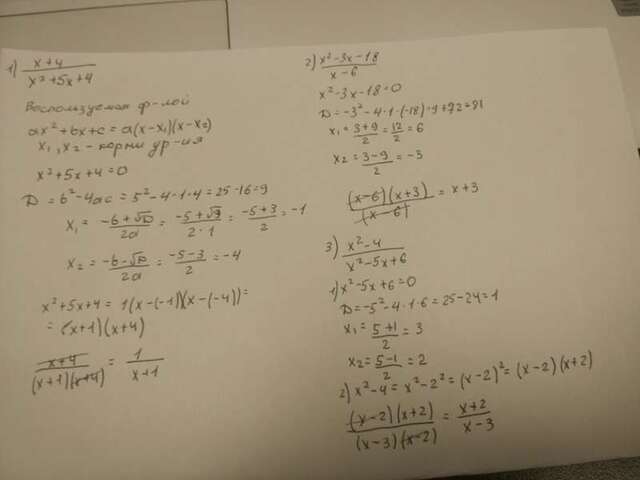 1) x+4 / x²+5x+4
Воспользуемся ф-лой
ax²+bx+c=a(x-x₁)(x-x₂)
x₁, x₂ - корни ур-ия
x²+5x+4=0
D=b²-4ac=5²-4·1·4=25-16=9
x₁= -b+√D / 2a = -5+√9 / 2·1 = -5+3 / 2 = -1
x₂= -b-√D / 2a = -5-3 / 2 = -4
x²+5x+4=1(x-(-1))(x-(-4))=
=(x+1)(x+4)
x+4 / (x+1)(x+4) = 1 / x+1
2) x²-3x-18 / x-6
x²-3x-18=0
D=-3²-4·1·(-18)=9+72=81
x₁= 3+9 / 2 = 12 / 2 = 6
x₂= 3-9 / 2 = -3
(x-6)(x+3) / (x-6) = x+3
3) x²-4 / x²-5x+6
1) x²-5x+6=0
D=-5²-4·1·6=25-24=1
x₁= 5+1 / 2 = 3
x₂= 5-1 / 2 = 2
2) x²-4=x²-2²=(x-2)²=(x-2)(x+2)
(x-2)(x+2) / (x-3)(x-2) = x+2 / x-3